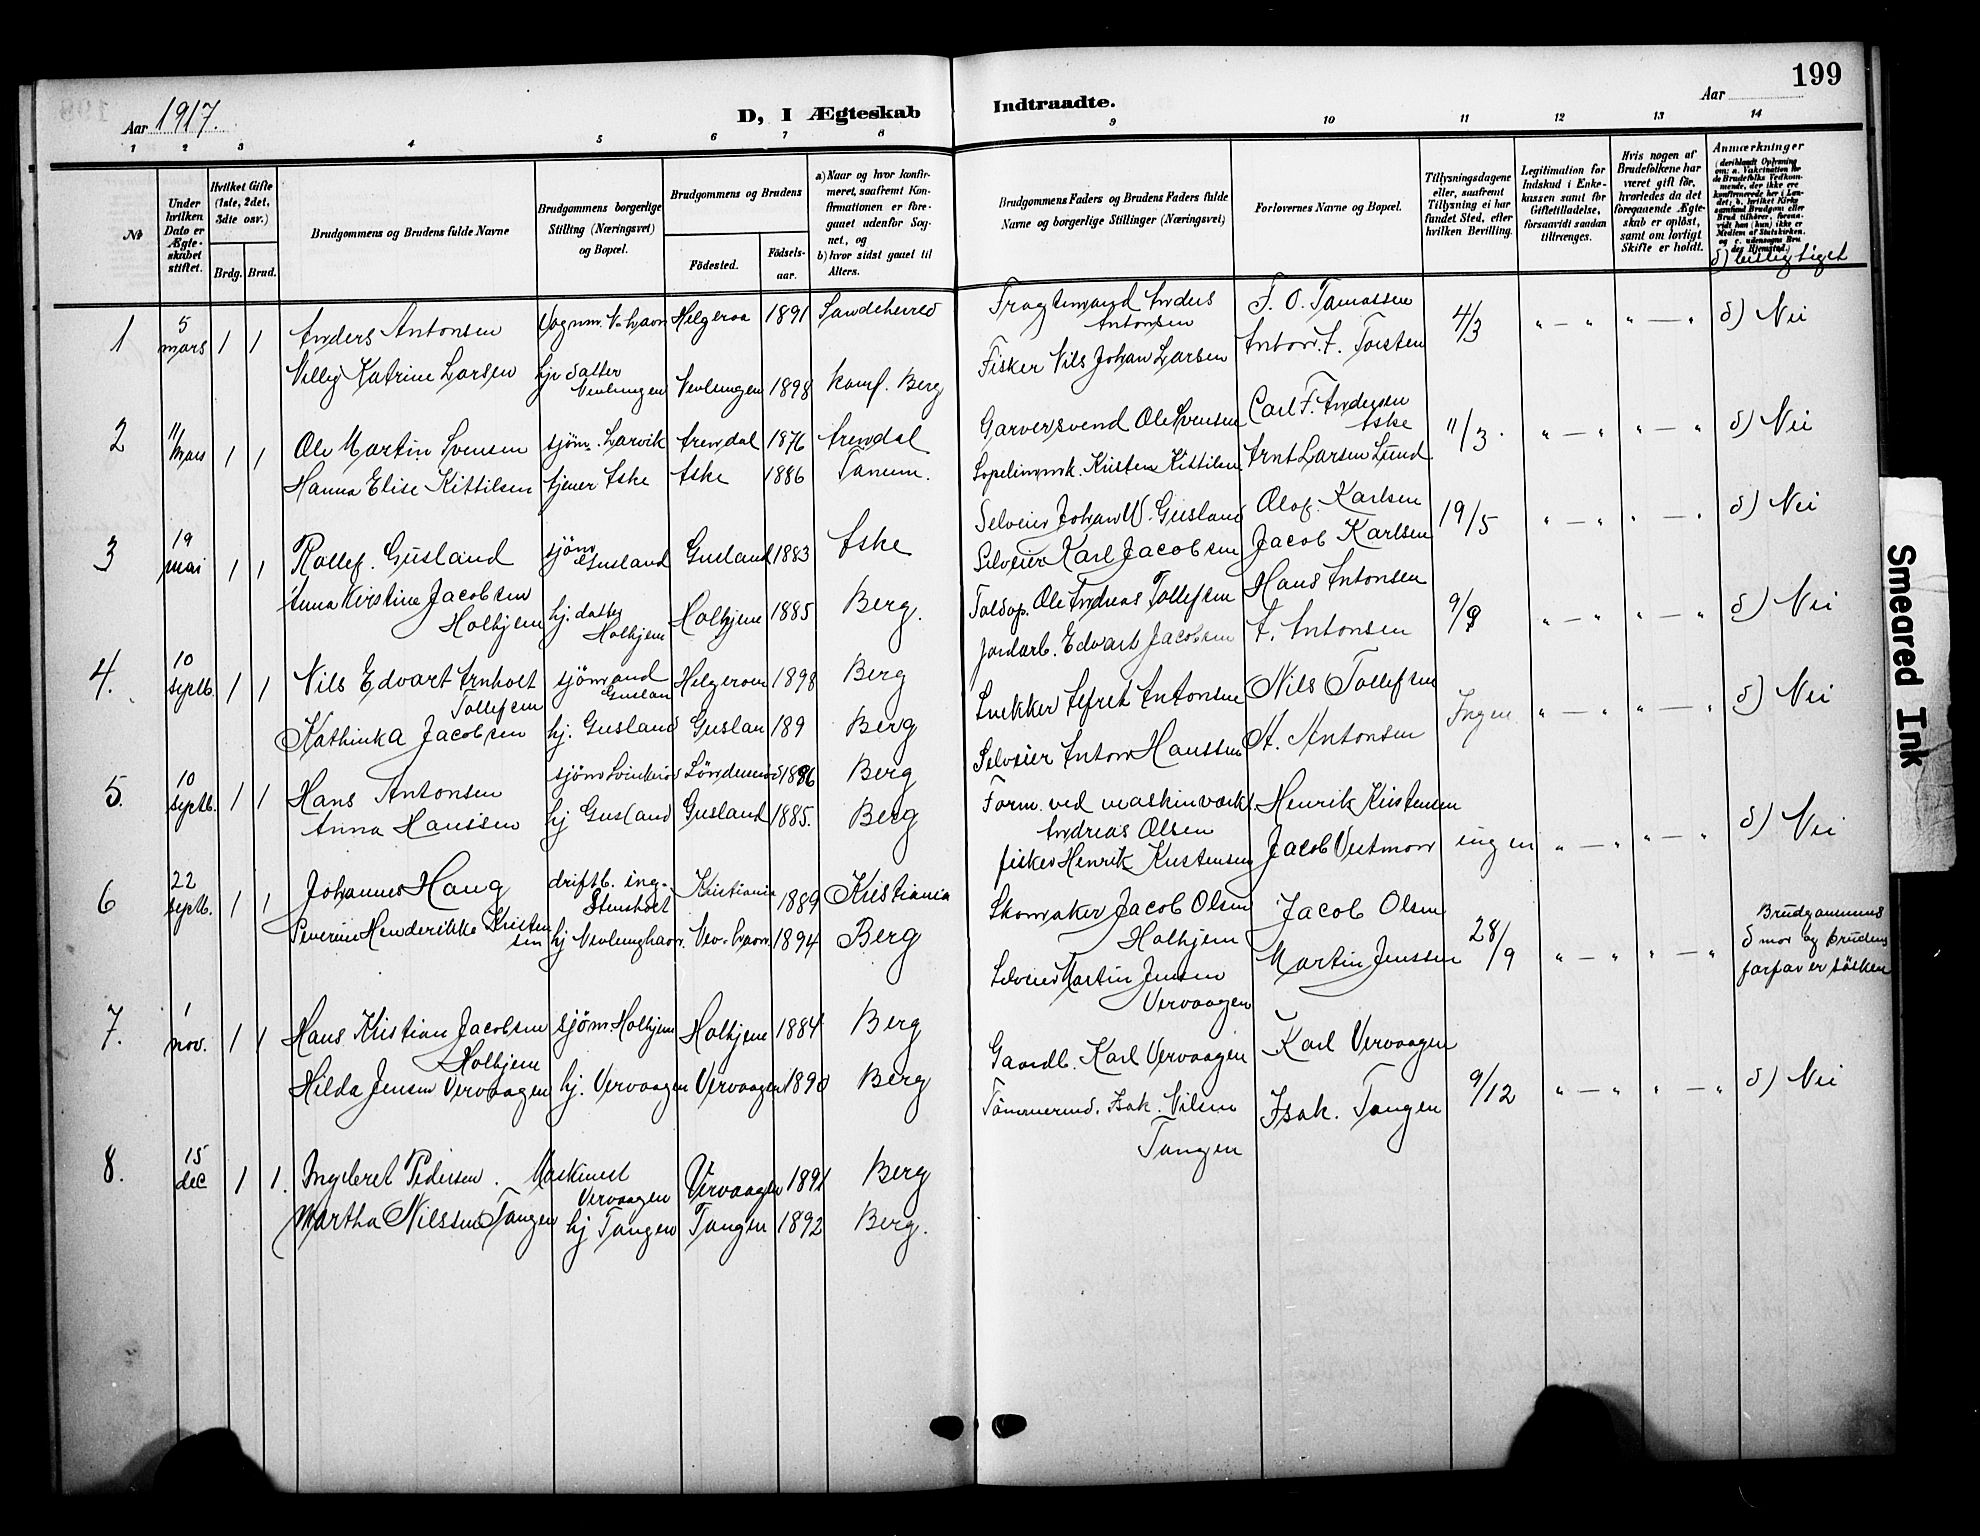 199
Aar 1917.
D, I Ægteskab Indtraadte.
Aar
1 2 3 4 5 6 7 8 9 10 11 12 13 14
№
Under hvilken Dato er Ægteskabet stiftet.
Hvilket Gifte (1ste, 2det, 3die osv.)
Brdg. Brud.
Brudgommens og Brudens fulde Navne
Brudgommens borgerlige Stilling (Næringsvei) og Bopæl.
Brudgommens og Brudens
Fødested. Fødselsaar.
a) Naar og hvor konfirmeret, saafremt Konfirmationen er foregaaet udenfor Sognet, og
b) hvor sidst gaaet til Alters.
Brudgommens Faders og Brudens Faders fulde Navne og borgerlige Stillinger (Næringsvei)
Forlovernes Navne og Bopæl.
Tillysningsdagene eller, saafremt Tillysning ei har fundet Sted, efter hvilken Bevilling.
Legitimation for Indskud i Enkekassen samt for Giftetilladelse, forsaavidt saadan tiltrænges.
Hvis nogen af Brudefolkene har været gift før, hvorledes da det foregaaende Ægteskab er opløst, samt om lovligt Skifte er holdt.
Anmærkninger
1 5 mars 1 1 Anders Antonsen Helgeroa 1891 Sandeherred
Fragtemand Anders Antonsen
4/3 " — " " — " d) Nei
Nelly Katrine Larsen hj. datter Nevlungen Nevlungen 1898 konf. Berg
Fisker Nils Johan Larsen
2 11/mars 1 1 Ole Martin Svensen sjøm. Larvik Arendal 1876 Arendal
Garversvend Ole Svensen Carl F. Andersen Aske 11/3. " — " " — " d) Nei
Hanna Elise Kittilsen tjener Aske Aske 1886 Tanum.
Kristen Kittilsen Arnt Larsen Lund
3 19 mai 1 1 Rollef. Gusland sjøm Gusland Gusland 1883 Aske
Selveier Johan W. Gusland Olof. Karlsen 19/5 " — " " — " d) Nei
Anna Kirstine Jacobsen Holhjem hj. datter Holhjem Holhjem 1885 Berg.
Selveier Karl Jacobsen Jacob Karlsen
4. 10 septb. 1 1 Nils Edvart Arnholt Tollefsen sjømand Guslan Helgeroen 1898 Berg
Ole Andreas Tollefsen Hans Antonsen 9/9 " — " " — " d) Nei
Kathinka Jacobsen hj. Gusland Guslan 189 Berg
Jordarb. Edvart Jacobsen A. Antonsen
5. 10 septb. 1 1 Hans Antonsen sjøm 1886 Berg
Snekker Antonsen Nils Tollefsen Ingen " — " " — " d) Nei
Anna Hanssen hj Gusland Gusland 1885. Berg
Selveier Anton Hanssen A. Antonsen
6 22 septb. 1 1 Johannes Haug driftb. ing. Kristiania 1889 Kristiania
Form. ved maskinværkt. Andreas Olsen Henrik Kristensen ingen " — " " — " d) Nei
Severine Henderikke Kristensen hj Nevlunghavn. Nev. havn. 1894 Berg
fisker Henrik Kristensen Jacob
7. 1 nov. 1 1 Hans Kristian Jacobsen Holhjem sjøm Holhjem Holhjem 1884 Berg
Skomaker Jacob Olsen Holhjem Jacob Olsen 28/9 " — " " — " Brudgommens mor og brudens farfar er søsken
Hilda Jensen Vervaagen hj. Vervaagen Vervaagen 1890 Berg
Selveier Martin Jensen Vervaagen Martin Jenssen
8. 15 dec 1 1. Ingebret Pedersen. Maskinist Vervaagen Vervaagen 1891 Berg
Gaardb. Karl Vervaagen Karl Vervaagen 9/12 " — " " — " d) Nei
Martha Nilssen Tangen hj Tangen Tangen 1892 Berg.
Tømmermd. Isak. Nilsen Tangen Isak. Tangen
Smeared Ink